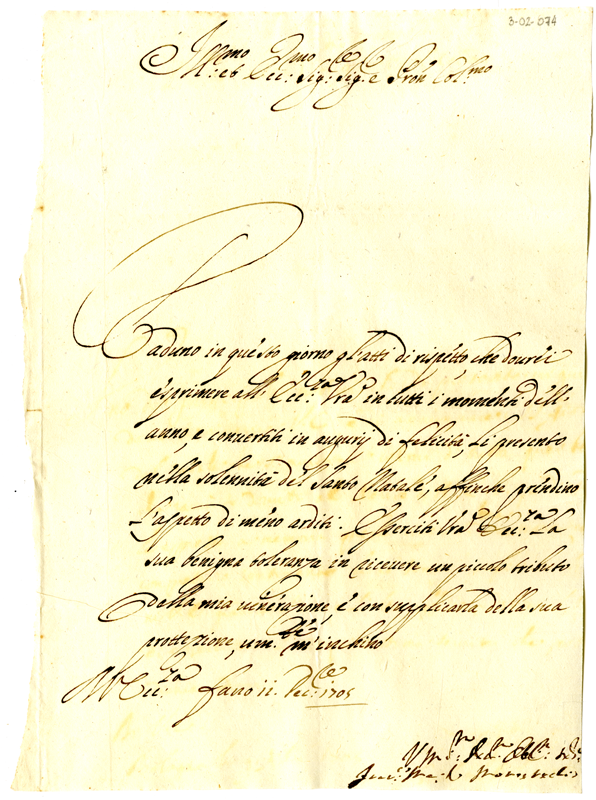 3-02-074
Ill:mo et Ecc:mo Sig:re Sig:re e Pron Col:mo
Raduno in questo giorno gl'atti di rispetto, che dourei
esprimere all' Ecc:za Vra in tutti i momenti dell'
anno, e convertiti in augurij di felicità, li presento
nella solennità del Santo Natale, affinche prendino
l'aspetto di meno arditi. Eserciti Vra Ecc:za la
sua benigna toleranza in riceuere un piccolo tributo
della mia uenerazione, e con supplicarla della sua
protezzione, um:te m'inchino
Ecc:za Fano 11. Dec:bre 1705